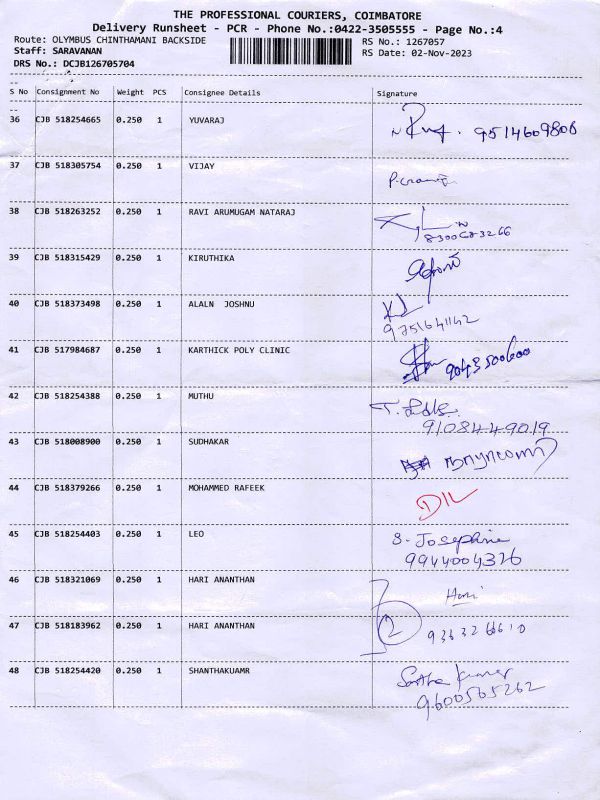 THE PROFESSIONAL COURIERS, COIMBATORE
Delivery Runsheet - PCR - Phone No.:0422-3505555 - Page No.:4
Route: OLYMBUS CHINTHAMANI BACKSIDE RS No.: 1267057
Staff: SARAVANAN RS Date: 02-Nov-2023
DRS No.: DCJB126705704
S No Consignment No Weight PCS Consignee Details Signature
36 CJB 518254665 0.250 1 YUVARAJ 9514609808
37 CJB 518305754 0.250 1 VIJAY
38 CJB 518263252 0.250 1 RAVI ARUMUGAM NATARAJ
8300683266
39 CJB 518315429 0.250 1 KIRUTHIKA
40 CJB 518373498 0.250 1 ALALN JOSHNU
9751641142
41 CJB 517984687 0.250 1 KARTHICK POLY CLINIC 9043500600
42 CJB 518254388 0.250 1 MUTHU
9108449019
43 CJB 518008900 0.250 1 SUDHAKAR
44 CJB 518379266 0.250 1 MOHAMMED RAFEEK D/L
45 CJB 518254403 0.250 1 LEO S. Josephine
9944004376
46 CJB 518321069 0.250 1 HARI ANANTHAN Hari
47 CJB 518183962 0.250 1 HARI ANANTHAN 2
48 CJB 518254420 0.250 1 SHANTHAKUAMR Santha Kumar
9600565262